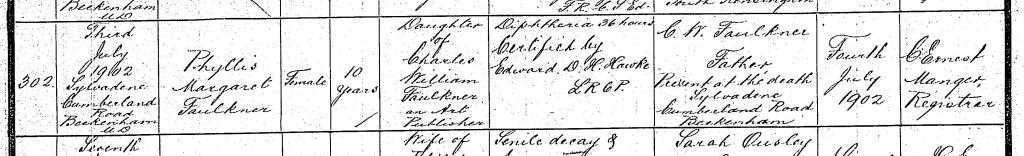 Beckenham
U D
F.R.C.S Ed.
302.
Third
July
1902
Sylvadene
Cumberland
Road
Beckenham
U D
Phyllis
Margaret
Faulkner
Female
10
years
Daughter
of
Charles
William
Faulkner
an Art
Publisher
Diphtheria 36 hours
Certified by
Edward. D. H. Hawke
L R C P.
C. W. Faulkner
Father
Present at the death
Sylvadene
Cumberland Road
Beckenham
Fourth
July
1902
C Ernest
Manger
Registrar
Seventh
Wife of
Senile decay &
Sarah